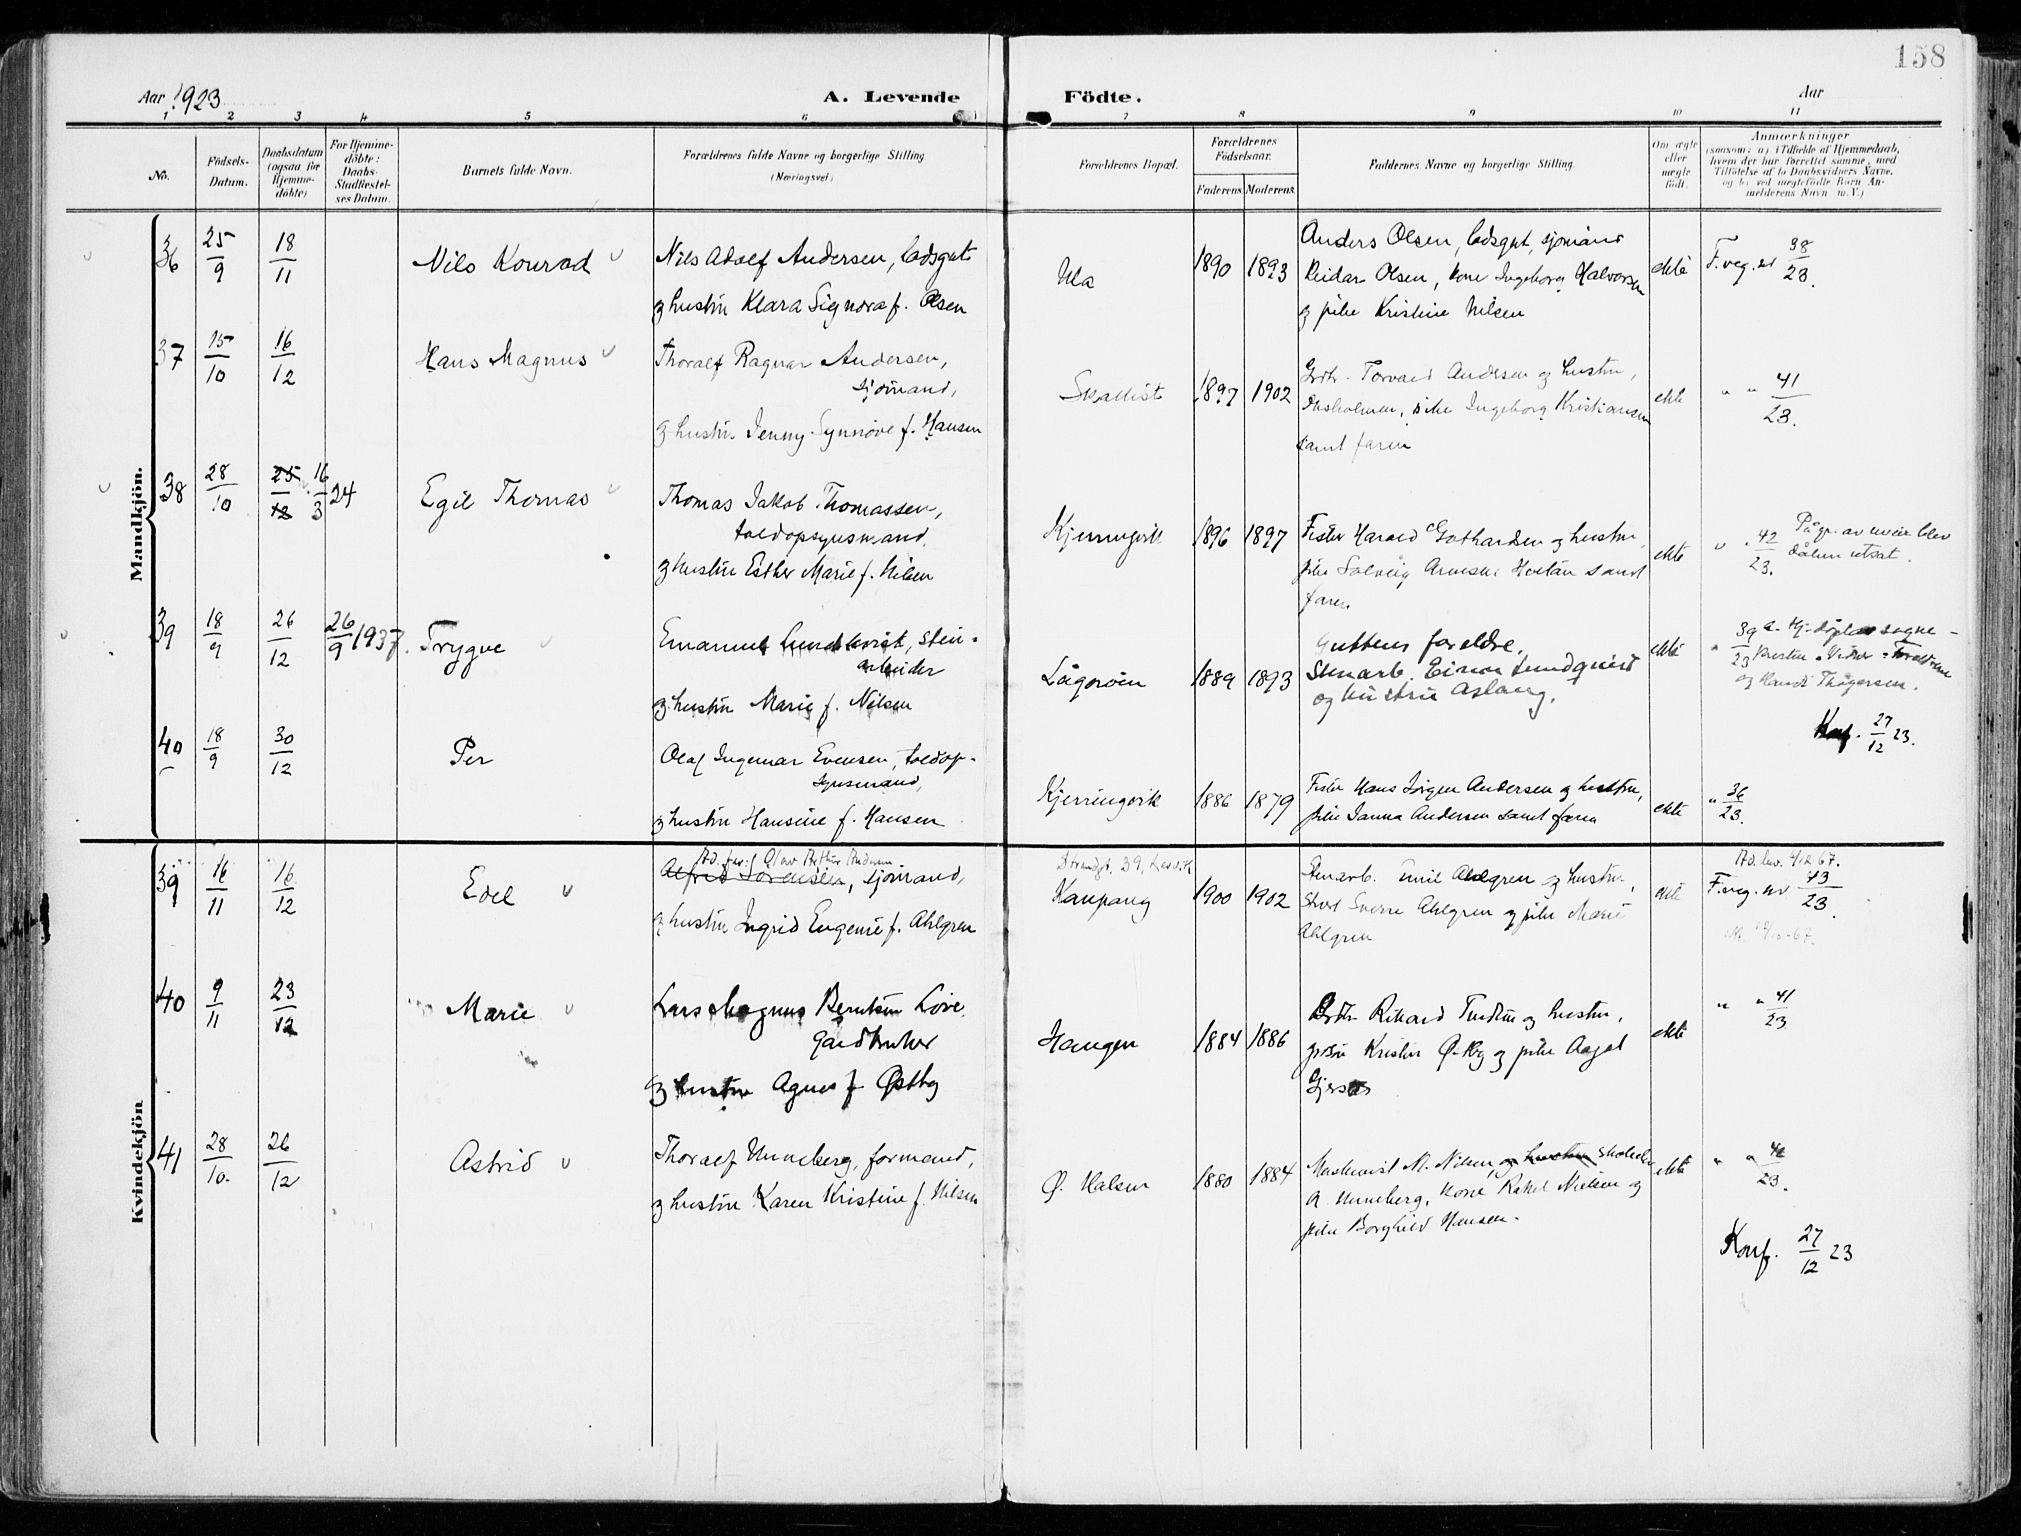 158
Aar 1923
A. Levende Födte.
Aar
1 2 3 4 5 6 7 8 9 10 11
No.
Födsels-Datum.
Daabsdatum (ogsaa for Hjemme-döbte)
For Hjemme-döbte: Daabs-Stadfæstel-ses Datum.
Barnets fulde Navn.
Forældrenes fulde Navne og borgerlige Stilling (Næringsvei)
Forældrenes Bopæl.
Forældrenes Födselsaar.
Faderens. Moderens.
Faddernes Navne og borgerlige Stilling.
Om ægte eller uægte födt.
Anmærkninger
(saasom: a) i Tilfælde af Hjemmedaab,
hvem der har forrettet samme, med
Tilföielse af to Daabsvidners Navne,
og b) ved uægtefödte Börn An-
melderens Navn m. V.)
Mandkjön.
36 25/9 18/11 Nils Konrad Nils Adolf Andersen, lodsgut
og hustru Klara Signora f. Olsen
Ula 1890 1893 Anders Olsen, lodsgut, sjömand
Reidar Olsen, kone Ingeborg Halvorsen
og pike Kristine Nilsen
ekte F. reg. nr 38/23.
37 15/10 16/12 Hans Magnus Thoralf Ragnar Andersen,
sjömand,
og hustru Jenny Synnöve f. Hansen
Skallist 1897 1902 Grdbr. Torvald Andersen og hustru,
pike Ingeborg Kristiansen
samt faren
ekte " " 41/23.
38 28/10 25/12 16/3 24 Egil Thomas Thomas Jakob Thomassen,
toldopsynsmand,
og hustru Esther Marie f. Nilsen
Kjerringvik 1896 1897 Fisker Harald Gothardsen og hustru,
pike Solveig samt
faren
ekte " 42/23. På gr. av uveir blev
dåben utsat.
39 18/9 26/12 26/9 1937. Trygve Emanuel Lundkvist, sten-
arbeider
og hustru Marie f. Nilsen
Lågeröen 1889 1893 Guttens foreldre.
Stenarb. Einar Lundquist
og hustru Aslaug.
ekte " 39/23 Hj. döpt av sogne-
presten. Vidner: Foreldrene
og Thögersen.
Konf. 27/12 23.
40 18/9 30/12 Per Olaf Ingemar Evensen, toldop-
synsmand,
og hustru Hansine f. Hansen
Kjerringvik 1886 1879 Fisker Hans Jörgen Andersen og hustru,
pike Janna Andersen samt faren
ekte " 36/23.
Kvindekjön
39 16/11 16/12 Edel Ad. for.: Olav Arthur Andersen
Alfred Sörensen, sjömand,
og hustru Ingrid Eugenie f. Ahlgren
Strandgt. 39, Larvik
Kaupang 1900 1902 Stenarb. Emil Ahlgren og hustru,
Sverre Ahlgren og pike Marie
Ahlgren
ekte F. reg. nr 43/23.
40 9/11 23/12 Marie Lars Magnus Berntsen Löve,
gårdbruker
og hustru Agnes f. Östby
Haugen 1884 1886 Grdbr. Rikard og hustru,
Kristian Östby og pike Aagot
ekte " " 41/23
41 28/10. 26/12 Astrid Thoralf Unneberg, formand,
og hustru Karen Kristine f. Nilsen
Ö. Halsen 1880 1884 Maskinist M. Nilsen, og hustru
A. Unneberg, kone Rakel Nielsen og
pike Borghild Hansen.
ekte " " 42/23.
Konf. 27/12 23